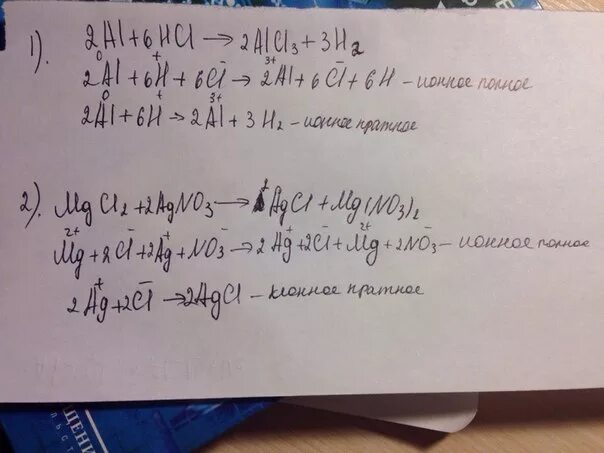 1). 2Al + 6HCl → 2AlCl₃ + 3H₂
2Al⁰ + 6H⁺ + 6Cl⁻ → 2Al³⁺ + 6Cl⁻ + 6H – ионное полное
2Al⁰ + 6H⁺ → 2Al³⁺ + 3H₂ – ионное кратное
2). MgCl₂ + 2AgNO₃ → AgCl + Mg(NO₃)₂
Mg²⁺ + 2Cl⁻ + 2Ag⁺ + NO₃⁻ → 2Ag⁺ + 2Cl⁻ + Mg²⁺ + 2NO₃⁻ – ионное полное
2Ag⁺ + 2Cl⁻ → 2AgCl – ионное кратное
ЩЕНИ
ЛЬСТ